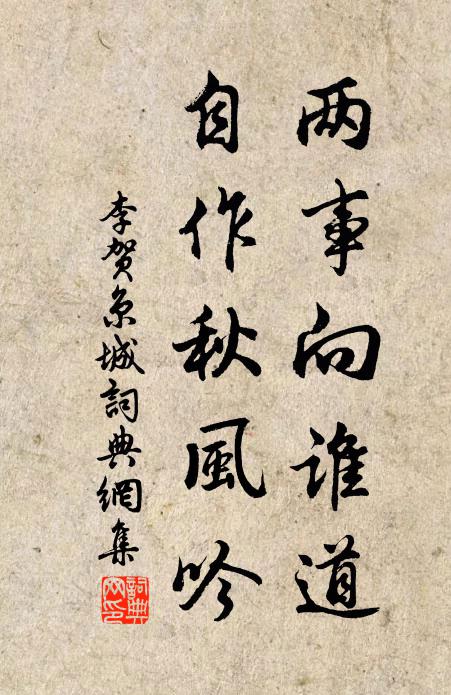 两事向谁道
自作秋風吟
李贺京城詞典網集
詞典网印